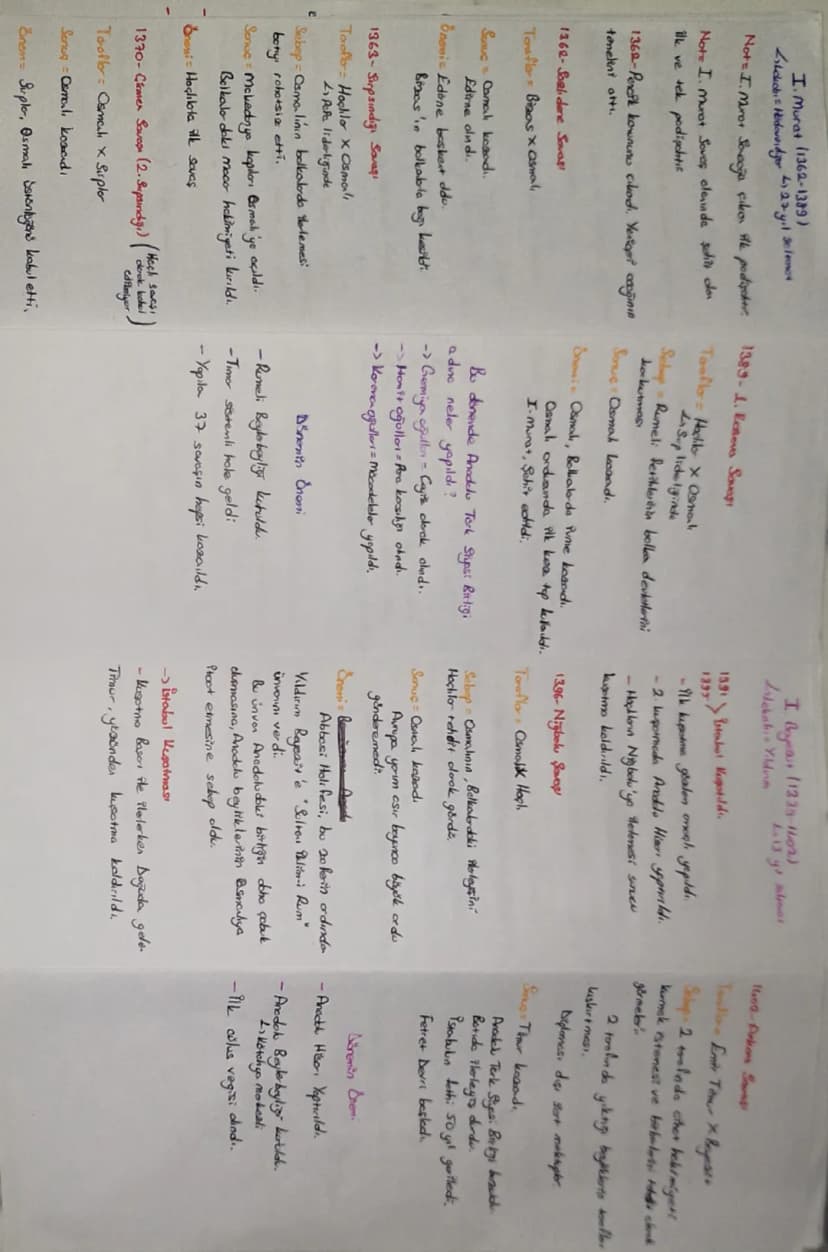 I. Murat (1362-1389)
↳ Lakabı = Hüdavendigar ↳ 27 yıl saltanat
Not = I. Murat Savaşa çıkan ilk padişahtır.
Not = I. Murat Savaş alanında şehit olan
ilk ve tek padişahtır
1362- Pençik kanununu çıkardı. Yeniçeri ocağının
temelini attı.
1362- Sazlıdere Savaşı
Taraflar = Bizans X Osmanlı
Sonuç = Osmanlı kazandı.
Edirne alındı.
Önemi = Edirne başkent oldu.
Bizans'ın balkanlarla bağı kesildi.
1363- Sırpsındığı Savaşı
Taraflar = Haçlılar X Osmanlı
↳ Papa liderliğinde
Sebep = Osmanlının balkanlarda ilerlemesi
batıyı rahatsız etti.
Sonuç = Makedonya kapıları Osmanlı'ya açıldı.
Balkanlardaki macar hakimiyeti kırıldı.
Önemi = Haçlılarla ilk savaş
1370- Çirmen Savaşı (2. Sırpsındığı) (Haçlı savaşı olarak kabul edilmiyor)
Taraflar = Osmanlı X Sırplar
Sonuç = Osmanlı kazandı.
Önemi = Sırplar, Osmanlı üstünlüğünü kabul etti.
1389- 1. Kosova Savaşı
Taraflar = Haçlılar X Osmanlı
↳ Sırp liderliğinde
Sebep = Rumeli fetihlerinin balkan devletlerini
korkutması
Sonuç = Osmanlı kazandı.
Önemi = Osmanlı, Balkanlarda ivme kazandı.
Osmanlı ordusunda ilk kez top kullanıldı.
I. Murat, Şehit edildi.
Bu dönemde Anadolu Türk Siyasi Birliği
adına neler yapıldı?
-> Germiyanoğulları = Çeyiz olarak alındı.
-> Hamitoğulları = Para karşılığı alındı.
-> Karamanoğulları = Mücadeleler yapıldı.
Dönemin Önemi
- Rumeli Beylerbeyliği kuruldu.
- Tımar sistemli hale geldi
- Yapılan 37 savaşın hepsi kazanıldı.
I. Bayezid (1389-1402)
↳ Lakabı = Yıldırım ↳ 13 yıl saltanat
1391
1397 > İstanbul Kuşatıldı.
- İlk kuşatma gözdağı amaçlı yapıldı.
- 2. kuşatmada Anadolu Hisarı yaptırıldı.
- Haçlıların Niğbolu'ya ilerlemesi sonucu
kuşatma kaldırıldı.
1396- Niğbolu Savaşı
Taraflar = Osmanlı X Haçlı
Sebep = Osmanlının, Balkanlardaki ilerleyişini
Haçlılar tehdit olarak gördü.
Sonuç = Osmanlı kazandı
Avrupa yarım asır boyunca büyük ordu
gönderemedi.
Önemi =
Abbasi Halifesi, bu zaferin ardından
Yıldırım Bayezid'e "Sultanı İklimi Rum"
ünvanını verdi.
Bu ünvan Anadoludaki birliğin daha çabuk
olmasına, Anadolu beyliklerinin Osmanlıya
itaat etmesine sebep oldu.
-> İstanbul Kuşatması
- Kuşatma Başarı ile ilerlerken Doğuda gelen
Timur, yüzünden kuşatma kaldırıldı.
1402- Ankara Savaşı
Taraflar = Emir Timur X Bayezid
Sebep = 2 tarafında cihan hakimiyeti
kurmak istemesi ve birbirlerini tehdit olarak
görmeleri.
2 tarafında yıktığı beyliklerin tarafları
kışkırtması.
Diplomasi dışı sert mektuplar.
Sonuç = Timur kazandı.
Anadolu Türk Siyasi Birliği bozuldu
Batıda ilerleyiş durdu.
İstanbulun fethi 50 yıl gecikti.
Fetret Devri başladı.
Dönemin Önemi
- Anadolu Hisarı Yaptırıldı.
- Anadolu Beylerbeyliği kuruldu.
↳ Kütahya merkezli
- İlk cülus vergisi alındı.